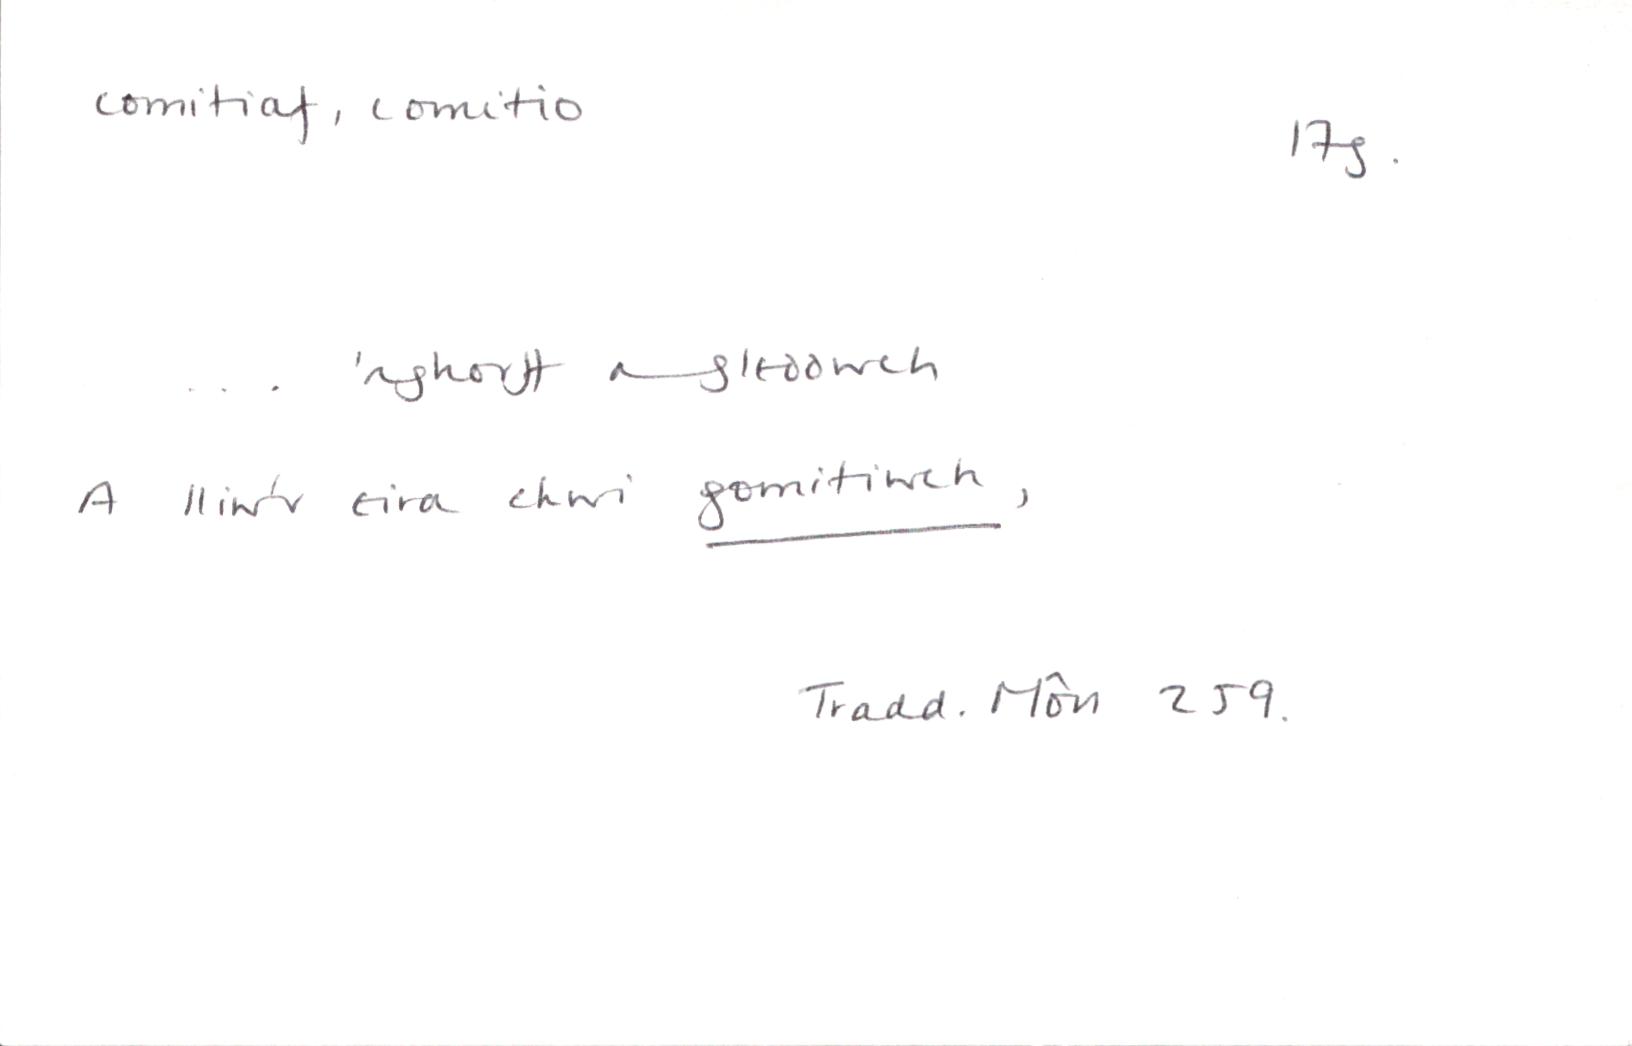 comitiaf, comitio
17g.
... 'nghorff a gleddwch
A lliw'r eira chwi gomitiwch,
Tradd. Môn 259.